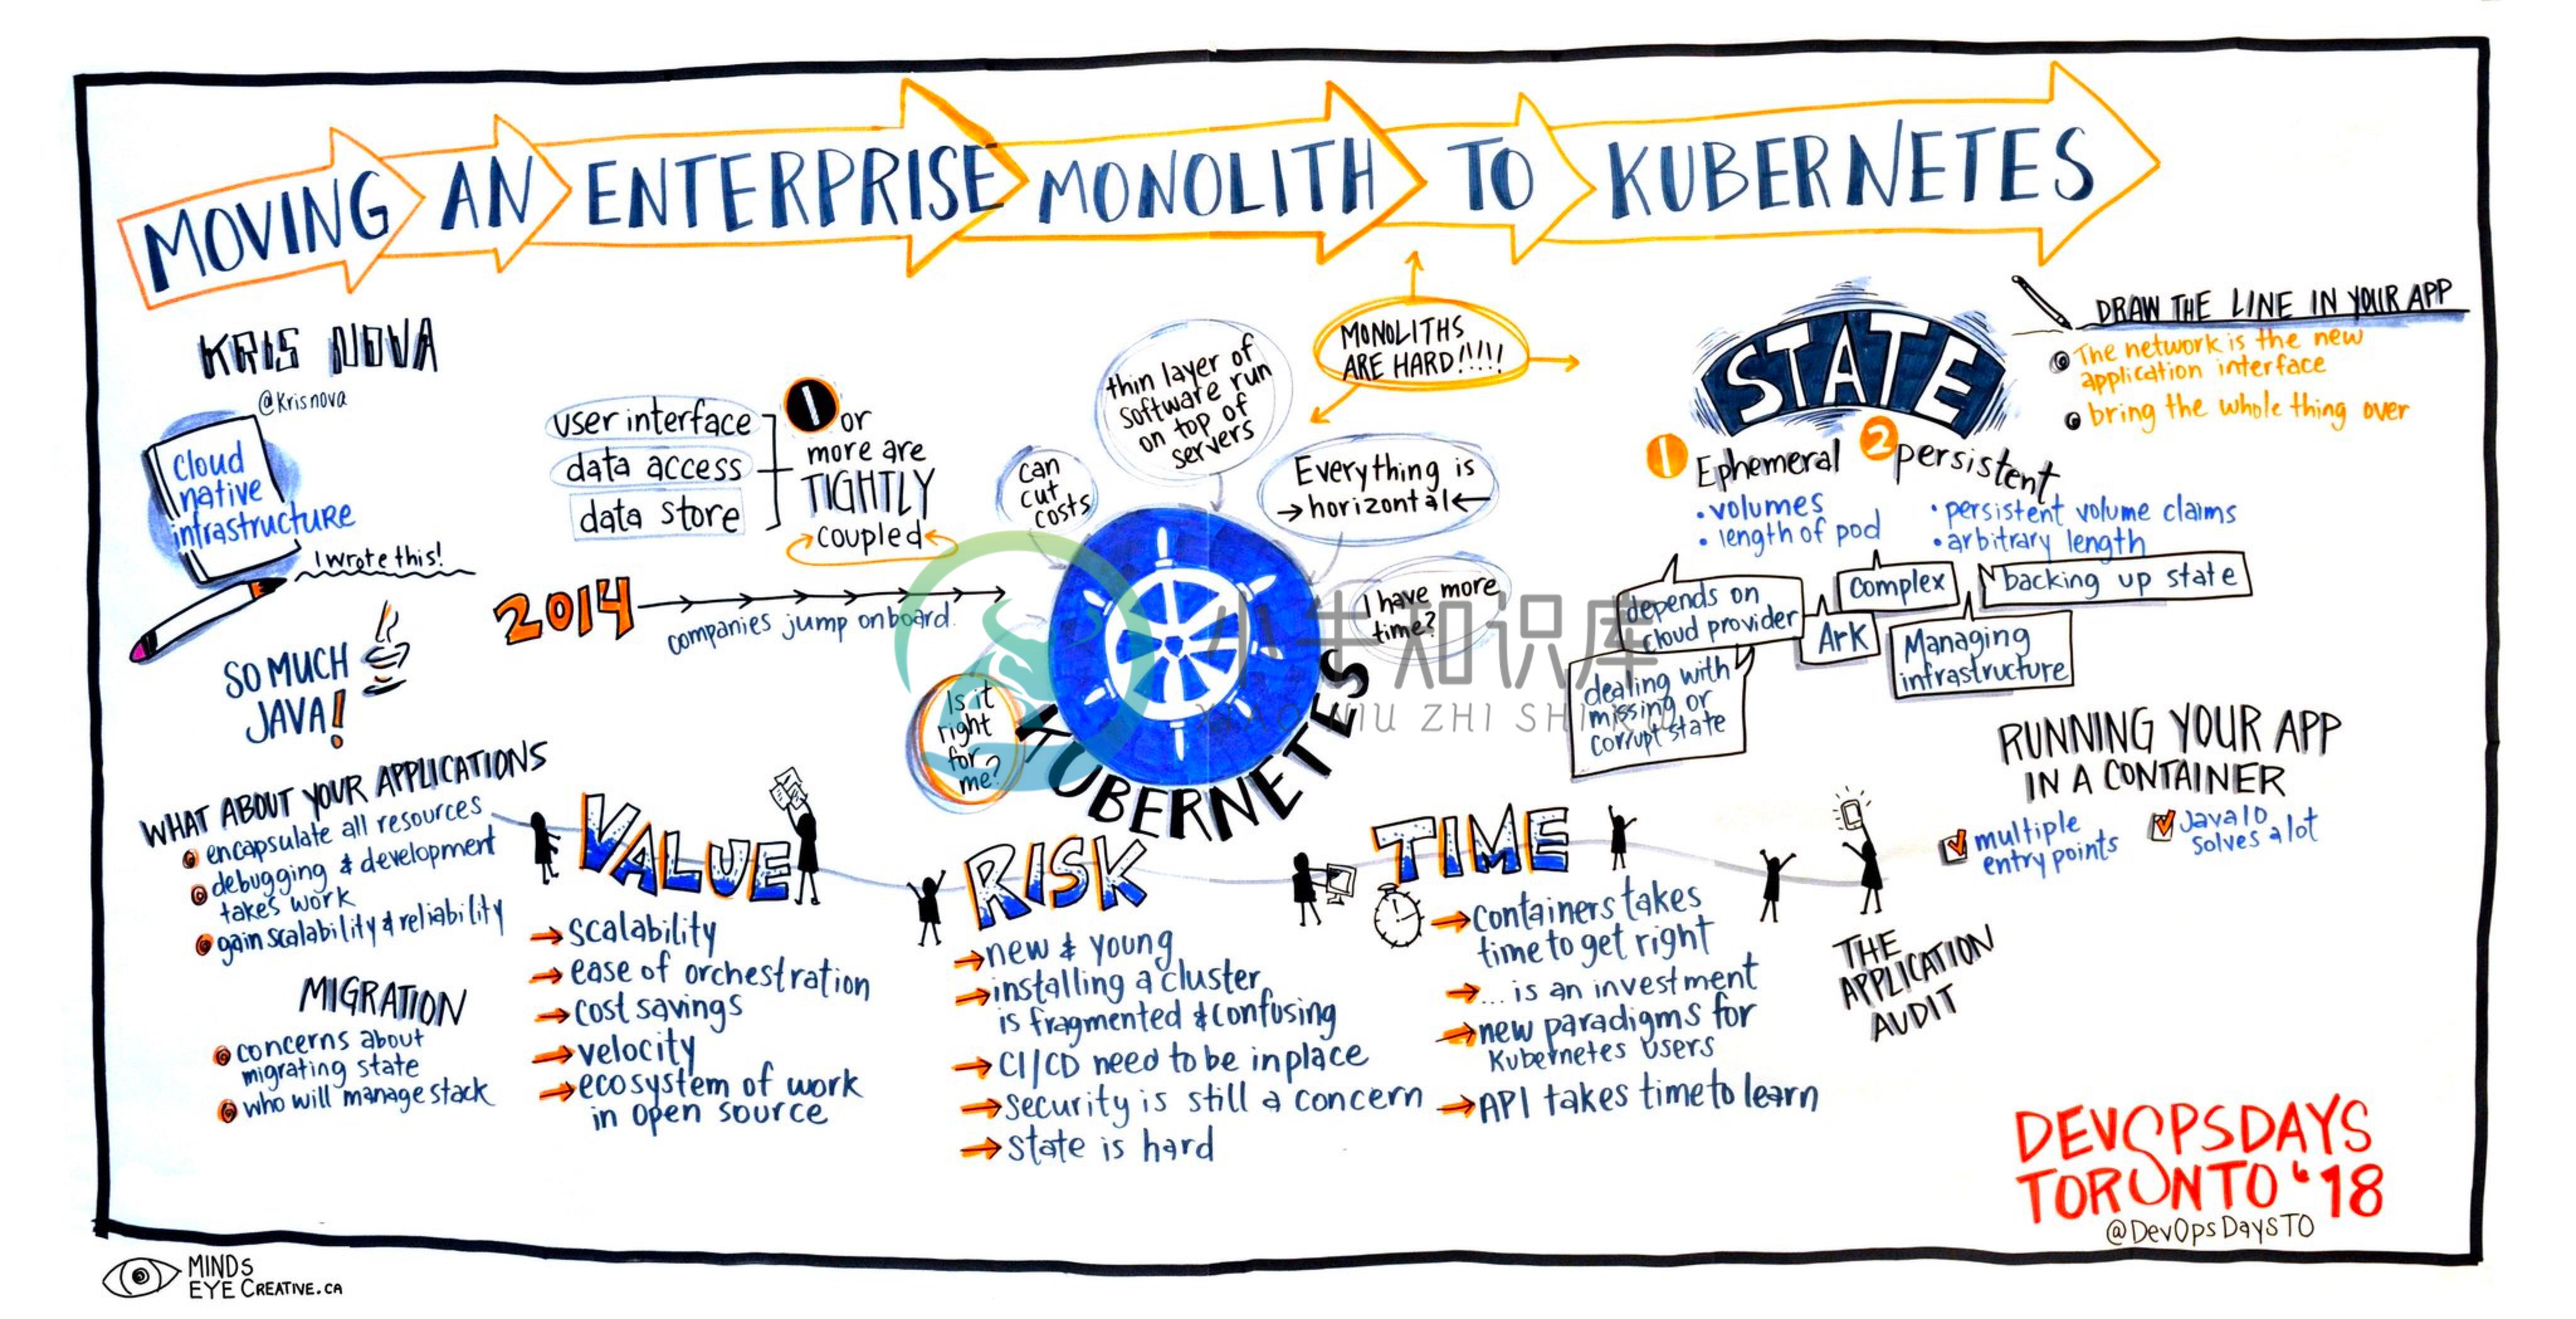 MOVING AN ENTERPRISE MONOLITH TO KUBERNETES
KRIS NOVA
@Krisnova
Cloud
native
infrastructure
I wrote this!
SO MUCH
JAVA!
user interface
data access
data store
1 or
more are
TIGHTLY
coupled
2014
companies jump onboard.
can
cut
costs
thin layer of
software run
on top of
servers
MONOLITHS
ARE HARD!!!!!
Everything is
horizontal
I have more
time?
Is it
right
for
me?
KUBERNETES
STATE
1 Ephemeral
• volumes
• length of pod
2 persistent
• persistent volume claims
• arbitrary length
depends on
cloud provider
Complex
backing up state
Ark
Managing
infrastructure
dealing with
missing or
corrupt state
DRAW THE LINE IN YOUR APP
The network is the new
application interface
bring the whole thing over
RUNNING YOUR APP
IN A CONTAINER
multiple
entry points
Java10
solves a lot
WHAT ABOUT YOUR APPLICATIONS
encapsulate all resources
debugging & development
takes work
gain scalability & reliability
MIGRATION
concerns about
migrating state
who will manage stack
VALUE
→ scalability
→ ease of orchestration
→ cost savings
→ velocity
→ ecosystem of work
in open source
RISK
→ new & young
→ installing a cluster
is fragmented & confusing
→ CI/CD need to be in place
→ Security is still a concern
→ State is hard
TIME
→ containers takes
time to get right
→ ... is an investment
→ new paradigms for
Kubernetes users
→ API takes time to learn
THE
APPLICATION
AUDIT
DEVOPSDAYS
TORONTO '18
@DevOpsDaysTO
MINDS
EYE CREATIVE.CA
小牛知识库
XIAO NIU ZHI SHI KU